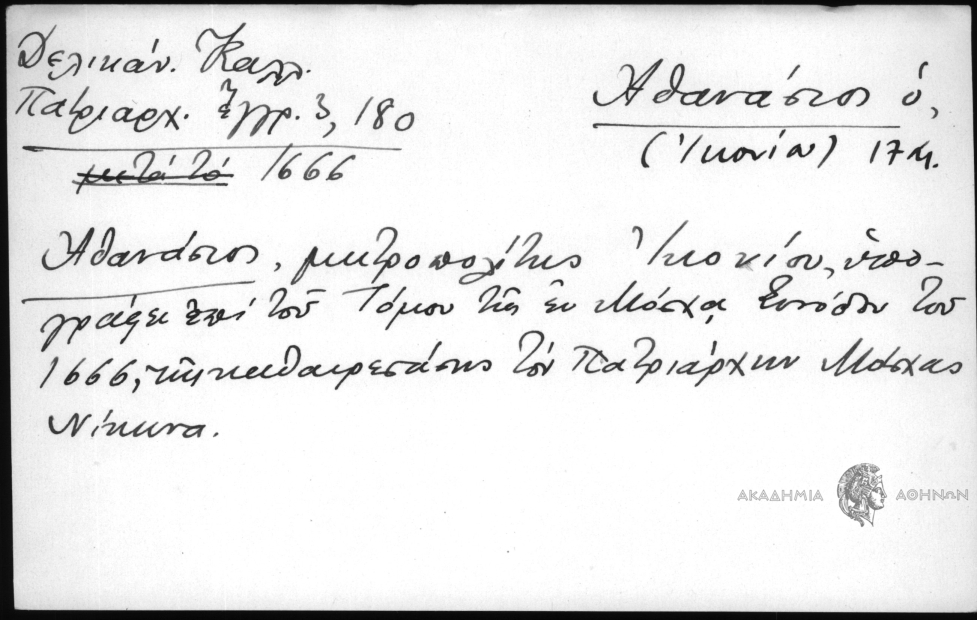 Δελικάν. Καλλ.
Πατριαρχ. Ἔγγρ. 3, 180
μετά τό 1666
Ἀθανάσιος ὁ,
(Ἰκονίου) 17 αι.
Ἀθανάσιος, μητροπολίτης Ἰκονίου, ὑπο-
γράφει ἐπί τοῦ Τόμου τῆς ἐν Μόσχᾳ Συνόδου τοῦ
1666, τῆς καθαιρεσάσης τόν Πατριάρχην Μόσχας
Νίκωνα.
ΑΚΑΔΗΜΙΑ ΑΘΗΝΩΝ